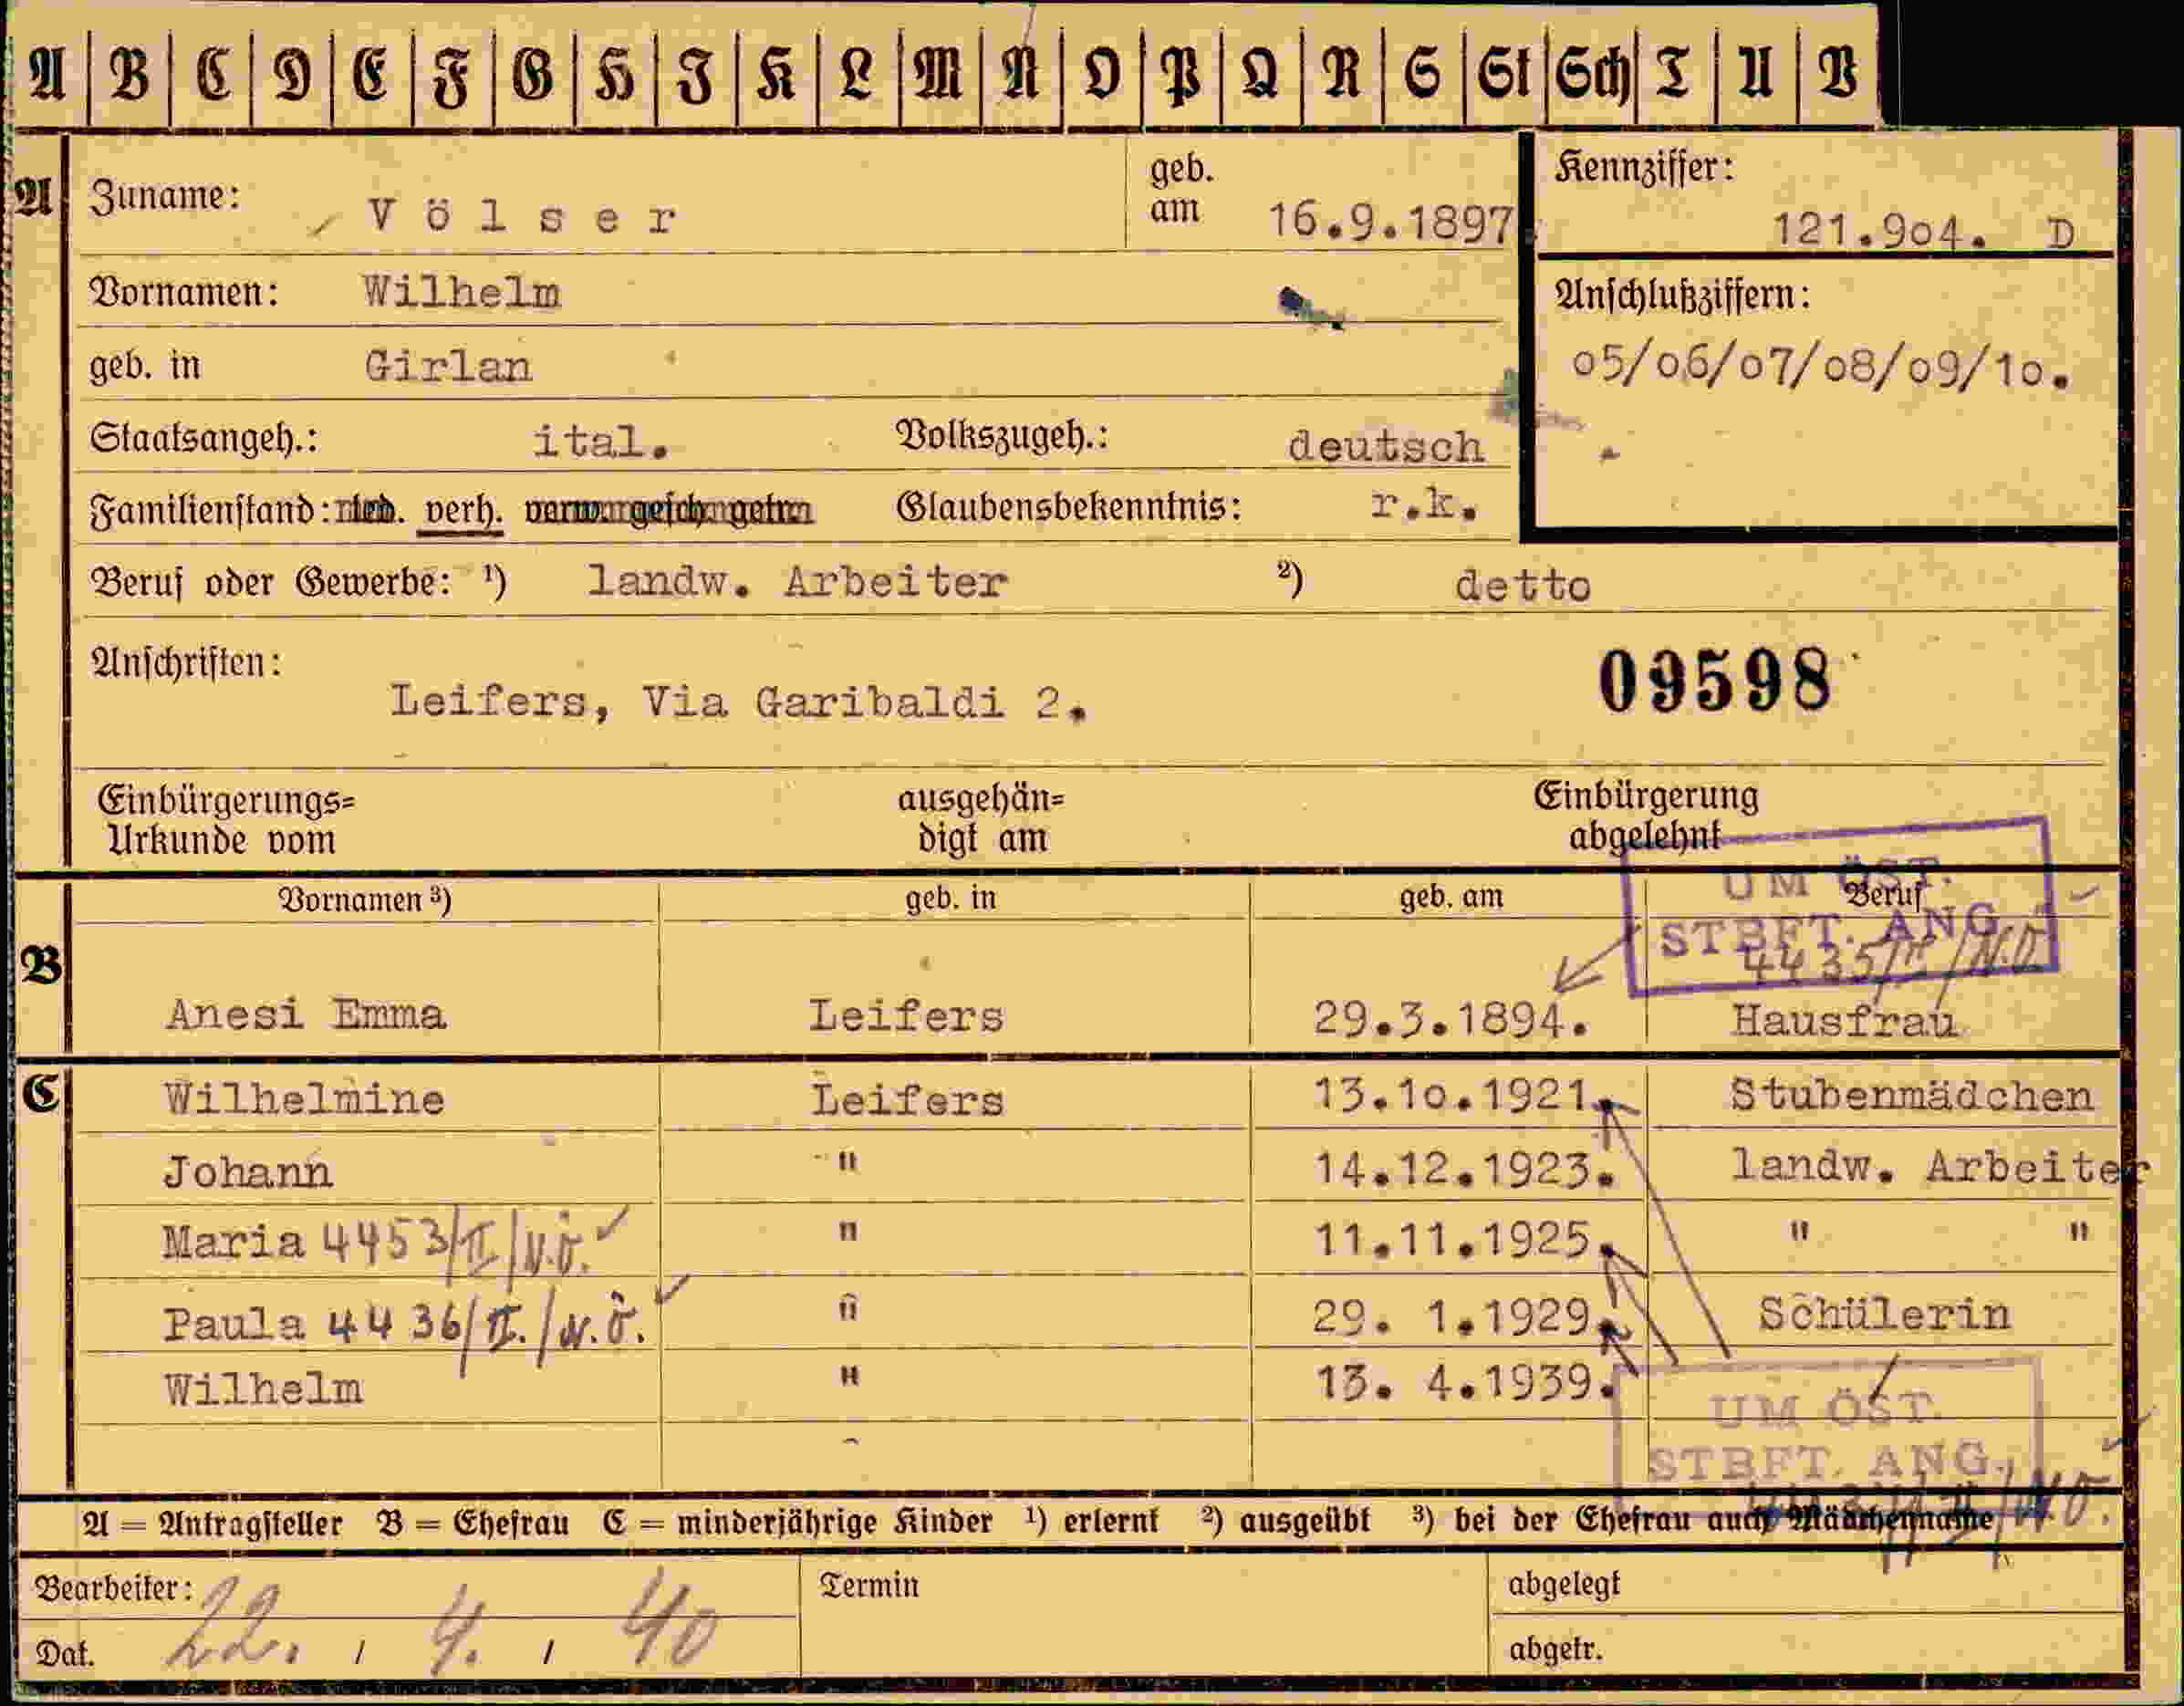 A | B | C | D | E | F | G | H | J | K | L | M | N | O | P | Q | R | S | St | Sch | T | U | V
A Zuname: Völser geb. am 16.9.1897 Kennziffer: 121.904. D
Vornamen: Wilhelm Anschlußziffern:
geb. in Girlan 05/06/07/08/09/10.
Staatsangeh.: ital. Volkszugeh.: deutsch
Familienstand: led. verh. verw. gesch. getr. Glaubensbekenntnis: r.k.
Beruf oder Gewerbe: 1) landw. Arbeiter 2) detto
Anschriften: 09598
Leifers, Via Garibaldi 2.
Einbürgerungs= ausgehän= Einbürgerung
Urkunde vom digt am abgelehnt
UM ÖST.
Vornamen 3) geb. in geb. am Beruf
STBFT. ANG.
4435/II/N.Ö.
B Anesi Emma Leifers 29.3.1894. Hausfrau
C Wilhelmine Leifers 13.10.1921. Stubenmädchen
Johann " 14.12.1923. landw. Arbeiter
Maria 4453/II/N.Ö. " 11.11.1925. " "
Paula 4436/II./N.Ö. " 29. 1.1929. Schülerin
Wilhelm " 13. 4.1939. /
UM ÖST.
STBFT. ANG.
A = Antragsteller B = Ehefrau C = minderjährige Kinder 1) erlernt 2) ausgeübt 3) bei der Ehefrau auch Mädchenname
Bearbeiter: Termin abgelegt
Dat. 22. / 4. / 40 abgetr.